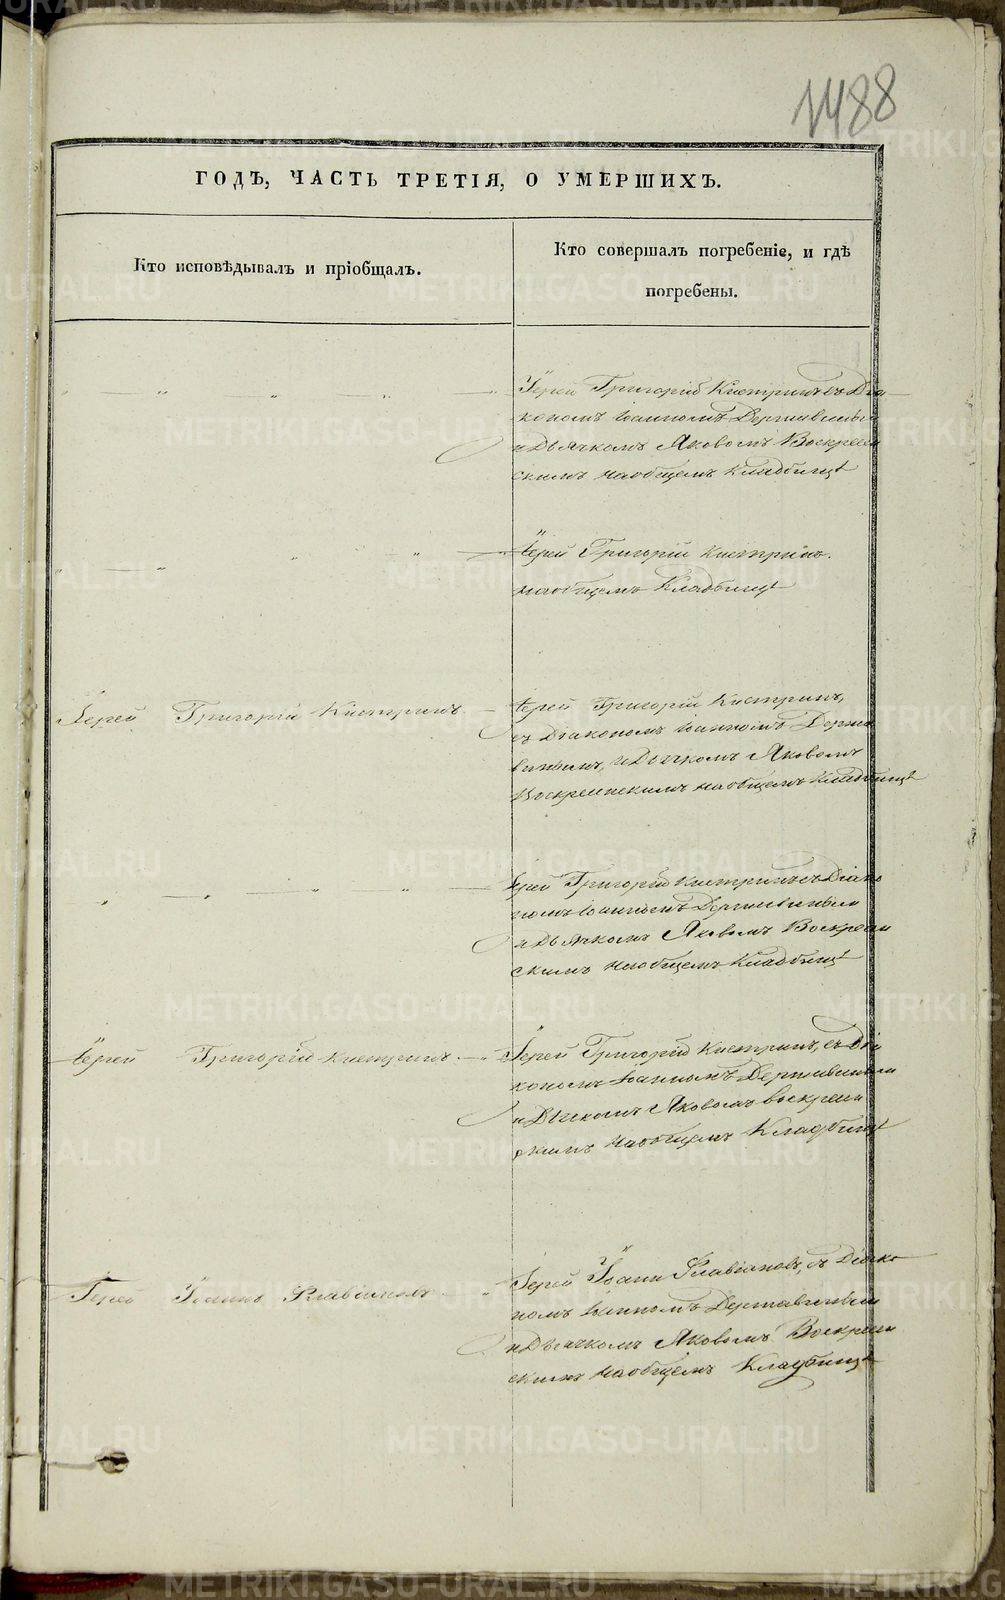 1488
ГОДЪ, ЧАСТЬ ТРЕТІЯ, О УМЕРШИХЪ.
Кто исповѣдывалъ и пріобщалъ.
Кто совершалъ погребеніе, и гдѣ
погребены.
Іерей Григорій Кистринъ съ Діа
кономъ Іоанномъ Державинымъ
и Дьячкомъ Яковомъ Воскресен
скимъ на общемъ Кладбищѣ
Іерей Григорій Кистринъ.
на общемъ Кладбищѣ
Іерей Григорій Кистринъ
Іерей Григорій Кистринъ,
съ Діакономъ Іоанномъ Держа
винымъ, и Дьячкомъ Яковомъ
Воскресенскимъ на общемъ Кладбищѣ
Іерей Григорій Кистринъ съ Діако
номъ Іоанномъ Державинымъ
и Дьячкомъ Яковомъ Воскресен
скимъ на общемъ Кладбищѣ
Іерей Григорій Кистринъ
Іерей Григорій Кистринъ, съ Діа
кономъ Іоанномъ Державинымъ
и Дьячкомъ Яковомъ Воскресен
скимъ на общемъ Кладбищѣ
Іерей Іоаннъ Славіановъ
Іерей Іоаннъ Славіановъ, съ Діако
номъ Іоанномъ Державинымъ
и Дьячкомъ Яковомъ Воскресен
скимъ на общемъ Кладбищѣ
METRIKI.GASO-URAL.RU